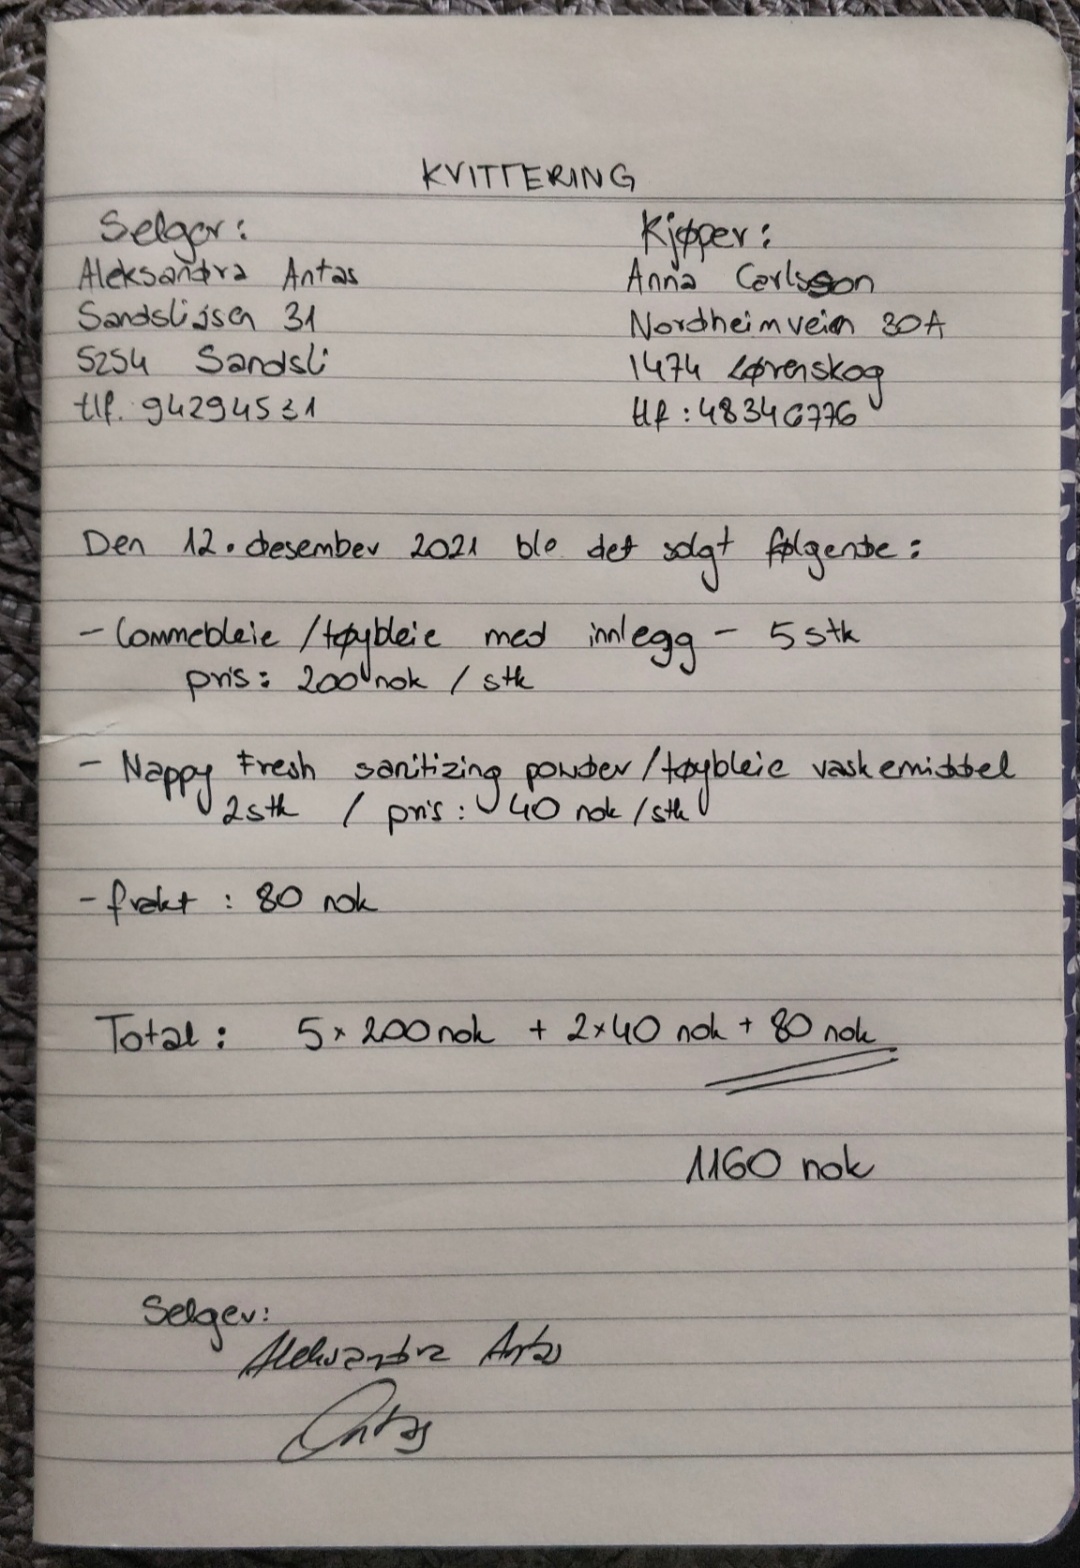 KVITTERING
Selger:
Aleksandra Antas
Sandsliåsen 31
5254 Sandsli
tlf. 94294531
Kjøper:
Anna Carlsson
Nordheimveien 30A
1474 Lørenskog
tlf: 48346776
Den 12. desember 2021 ble det solgt følgende:
- Lommebleie / tøybleie med innlegg - 5 stk
pris: 200 nok / stk
- Nappy Fresh sanitizing powder / tøybleie vaskemiddel
2 stk / pris: 40 nok / stk
- frakt: 80 nok
Total: 5 x 200 nok + 2 x 40 nok + 80 nok
1160 nok
Selger:
Aleksandra Antas
Antas